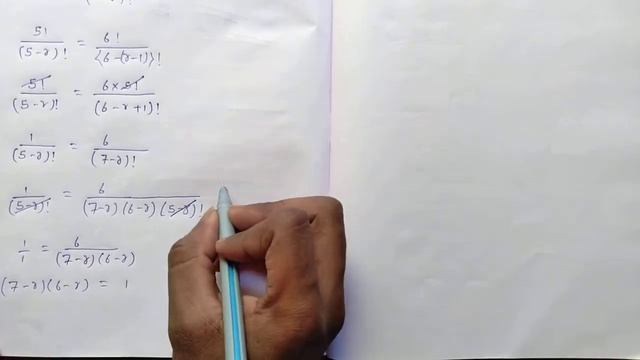 5! / (5-r)! = 6! / {6-(r-1)}!
5! / (5-r)! = 6×5! / (6-r+1)!
1 / (5-r)! = 6 / (7-r)!
1 / (5-r)! = 6 / (7-r)(6-r)(5-r)!
1/1 = 6 / (7-r)(6-r)
(7-r)(6-r) = 1